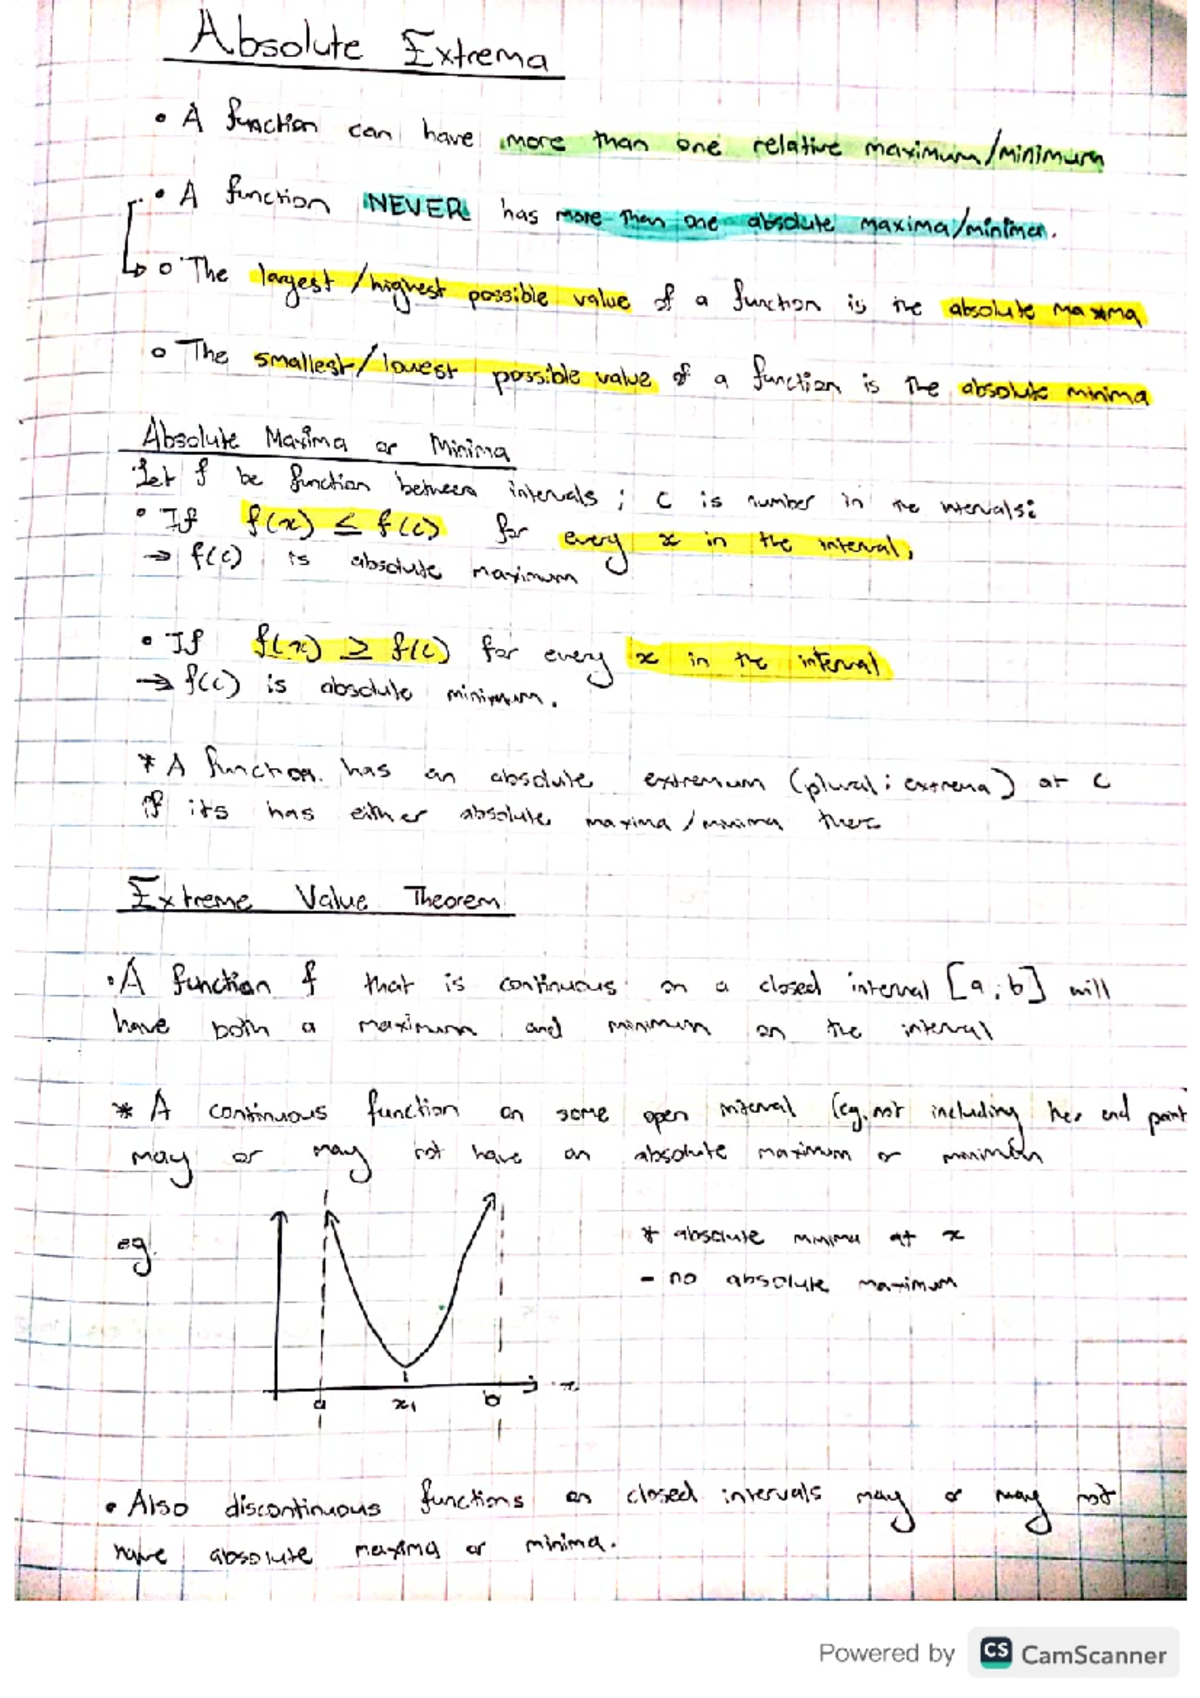 Absolute Extrema
• A function can have more than one relative maximum/minimum
• A function NEVER has more than one absolute maxima/minima.
o The largest/highest possible value of a function is the absolute maxima
o The smallest/lowest possible value of a function is the absolute minima
Absolute Maxima or Minima
Let f be function between intervals ; c is number in the intervals:
• If f(x) ≤ f(c) for every x in the interval,
→ f(c) is absolute maximum
• If f(x) ≥ f(c) for every x in the interval
→ f(c) is absolute minimum.
* A function has an absolute extremum (plural: extrema) at c
if its has either absolute maxima/minima there
Extreme Value Theorem
• A function f that is continuous on a closed interval [a;b] will
have both a maximum and minimum on the interval
* A continuous function on some open interval (eg. not including end point
may or may not have an absolute maximum or minimum
eg.
* absolute minima at x
- no absolute maximum
a x₁ b x
• Also discontinuous functions on closed intervals may or may not
have absolute maxima or minima.
Powered by CS CamScanner